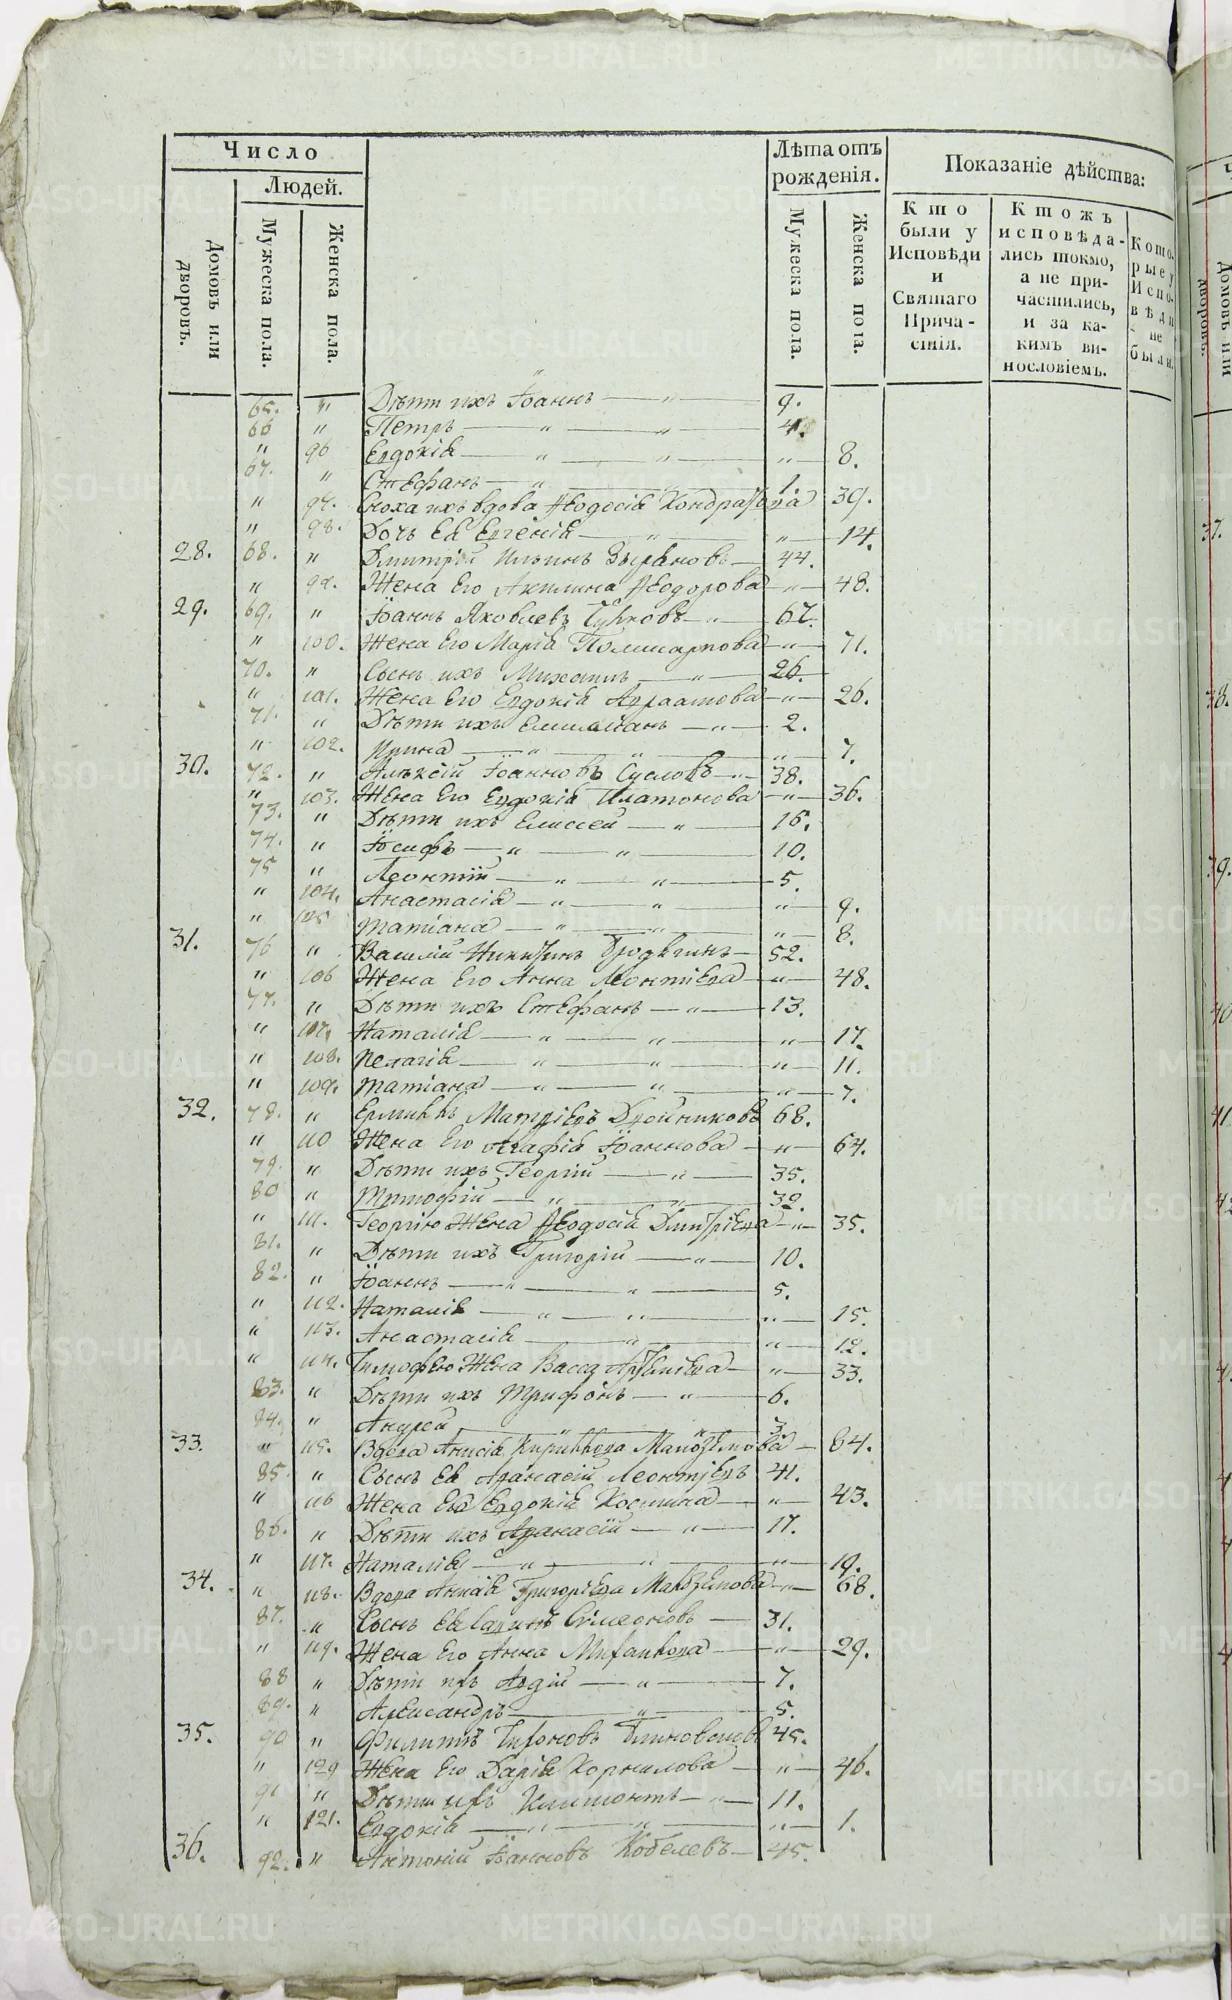 Число
Людей.
Домовъ или дворовъ.
Мужеска пола.
Женска пола.
Лѣта отъ рожденія.
Мужеска пола.
Женска пола.
Показаніе дѣйства:
Кто были у Исповѣди и Святаго Прича-стія.
Ктожъ исповѣда-лись токмо, а не при-частились, и за ка-кимъ ви-нословіемъ.
Кото-рые у Испо-вѣди не были.
65. " Дѣти ихъ Іоаннъ — " — 9.
66 " Петръ — " — " — 4.
" 96 Евдокія — " — " — " — 8.
67. " Стефанъ — " — 1.
" 97. Сноха ихъ вдова Ѳеодосія Кондратова 39.
" 98. Дочь Ея Евгенія — " — " — 14.
28. 68. " Дмитрій Ильинъ Зыряновъ — 44.
" 99. Жена Его Акилина Ѳеодорова — " — 48.
29. 69. " Іоаннъ Яковлевъ — " — 67.
" 100. Жена Его Марія Поликарпова — " — 71.
70. " Сынъ ихъ Михаилъ — " — 26.
" 101. Жена Его Евдокія Авраамова — " — 26.
71. " Дѣти ихъ Емилианъ — " — 2.
" 102. Ирина — " — " — " 7.
30. 72. " Алексій Іоанновъ Сусловъ — " — 38.
" 103. Жена Его Евдокія Платонова — " — 36.
73. " Дѣти ихъ Елиссей — " — 16.
74. " Іосифъ — " — " — 10.
75 " Леонтій — " — " — 5.
" 104. Анастасія — " — " — " — 9.
" 105 Татіана — " — " — " — 8.
31. 76 " Василій Никитинъ — 52.
" 106 Жена Его Анна Леонтіева — " — 48.
77. " Дѣти ихъ Стефанъ — " — 13.
" 107. Наталія — " — " — " — 17.
" 108. Пелагія — " — " — 11.
" 109. Татіана — " — " — " — 7.
32. 78. " Матвіевъ Двойниковъ 68.
" 110 Жена Его Агафія Іоаннова — " — 64.
79. " Дѣти ихъ Георгій — " — 35.
80 " Тимофій — " — " — 32.
" 111. Георгію Жена Ѳеодосія Дмитріева — " — 35.
81. " Дѣти ихъ Григорій — " — 10.
82. " Іоаннъ — " — " — 5.
" 112. Наталія — " — " — " — 15.
" 113. Анастасія — " — " — 12.
" 114. Тимофею Жена Васса — " — 33.
83. " Дѣти ихъ Трифонъ — " — 6.
84. " Андрей — " — " — 3.
33. " 115. Вдова Анисія Кирилова 64.
85. " Сынъ Ея Афанасій Леонтіевъ 41.
" 116 Жена Евдокія Космина — " — 43.
86. " Дѣти ихъ Афанасій — " — 17.
" 117. Наталія — " — " — " — 19.
34. " 118. Вдова Григоріева — " — 68.
87. " Сынъ Ея Симеоновъ — 31.
" 119. Жена Его Анна Михаилова — " — 29.
88 " Дѣти ихъ Авдій — " — 7.
89. " Александръ — " — 5.
35. 90 " Филиппъ 45.
" 120 Жена Его Дарія Корнилова — " — 46.
91 " Дѣти ихъ — " — 11.
" 121. Евдокія — " — " — " — 1.
36. 92. " Антоній Іоанновъ Кобелевъ — 45.
METRIKI.GASO-URAL.RU